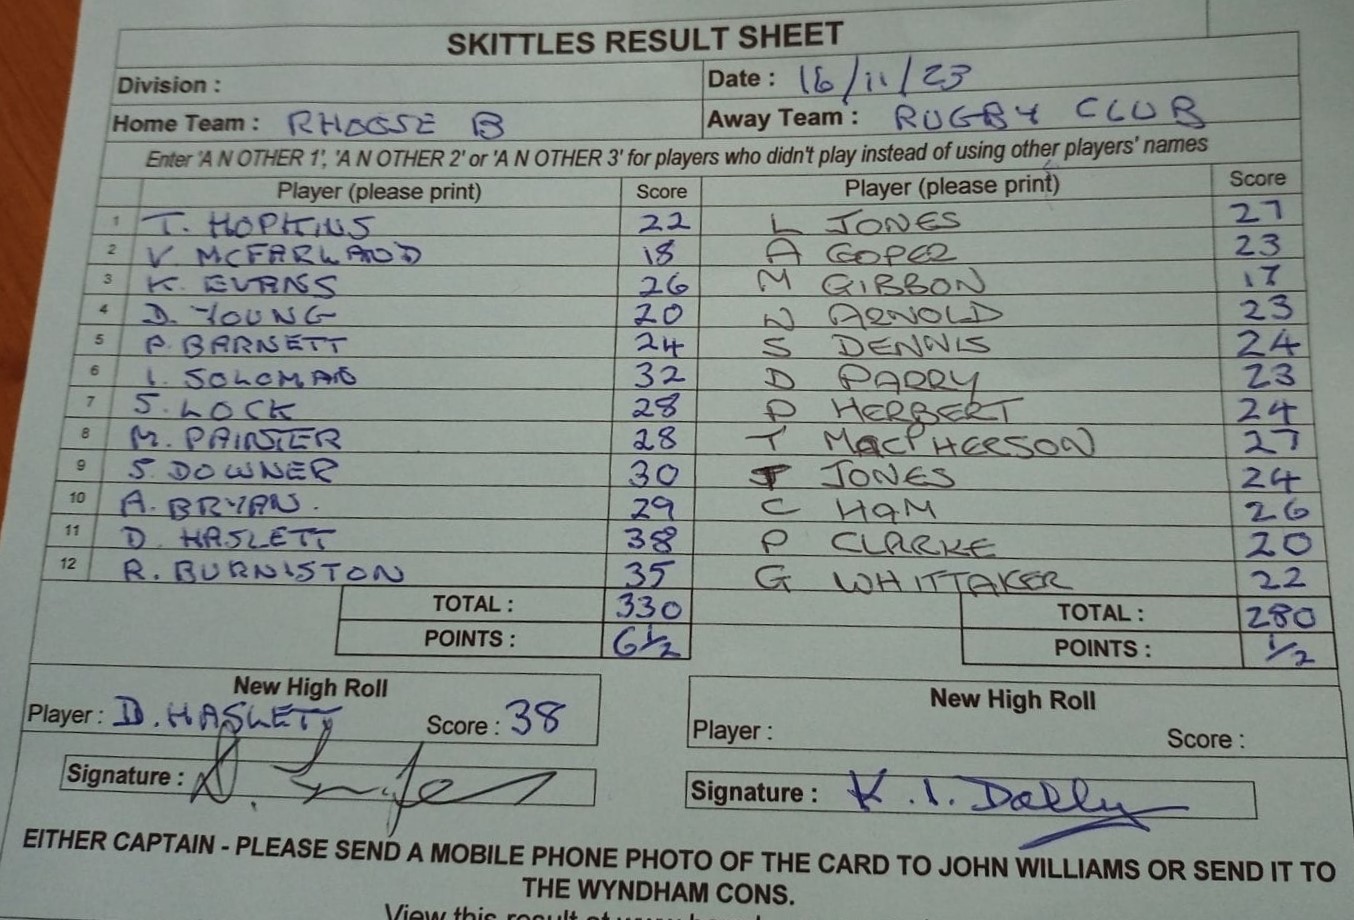 SKITTLES RESULT SHEET
Division : Date : 16/11/23
Home Team : RHOOSE B Away Team : RUGBY CLUB
Enter 'A N OTHER 1', 'A N OTHER 2' or 'A N OTHER 3' for players who didn't play instead of using other players' names
Player (please print) Score Player (please print) Score
1 T. HOPKINS 22 L JONES 27
2 V. MCFARLAND 18 A COPER 23
3 K. EVANS 26 M GIBBON 17
4 D. YOUNG 20 N ARNOLD 23
5 P. BARNETT 24 S DENNIS 24
6 I. SOLOMAN 32 D PARRY 23
7 S. LOCK 28 D HERBERT 24
8 M. PAINTER 28 T MACPHERSON 27
9 S. DOWNER 30 J JONES 24
10 A. BRYAN. 29 C HAM 26
11 D. HASLETT 38 P CLARKE 20
12 R. BURNISTON 35 G WHITTAKER 22
TOTAL : 330 TOTAL : 280
POINTS : 6 1/2 POINTS : 1/2
New High Roll New High Roll
Player : D. HASLETT Score : 38 Player : Score :
Signature : Signature : K. I. Dally
EITHER CAPTAIN - PLEASE SEND A MOBILE PHONE PHOTO OF THE CARD TO JOHN WILLIAMS OR SEND IT TO
THE WYNDHAM CONS.
View this result at